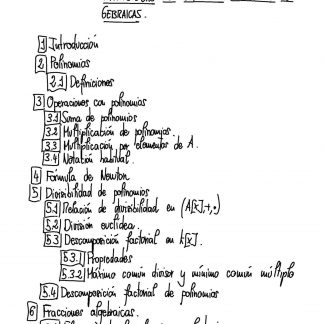 GEBRAICAS.
1 Introducción
2 Polinomios
2.1 Definiciones
3 Operaciones con polinomios
3.1 Suma de polinomios
3.2 Multiplicación de polinomios.
3.3 Multiplicación por elementos de A.
3.4 Notación habitual.
4 Fórmula de Newton
5 Divisibilidad de polinomios
5.1 Relación de divisibilidad en (A[x],+,•)
5.2 División euclídea.
5.3 Descomposición factorial en k[x].
5.3.1 Propiedades
5.3.2 Máximo común divisor y mínimo común múltiplo
5.4 Descomposición factorial de polinomios
6 Fracciones algebraicas.